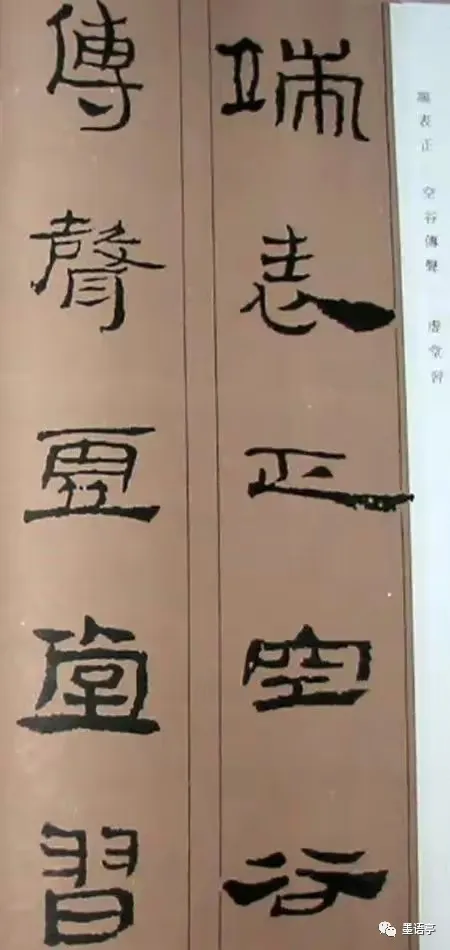 端表正空谷
傳聲虛堂習
端表正 空谷傳聲 虛堂習
墨语亭